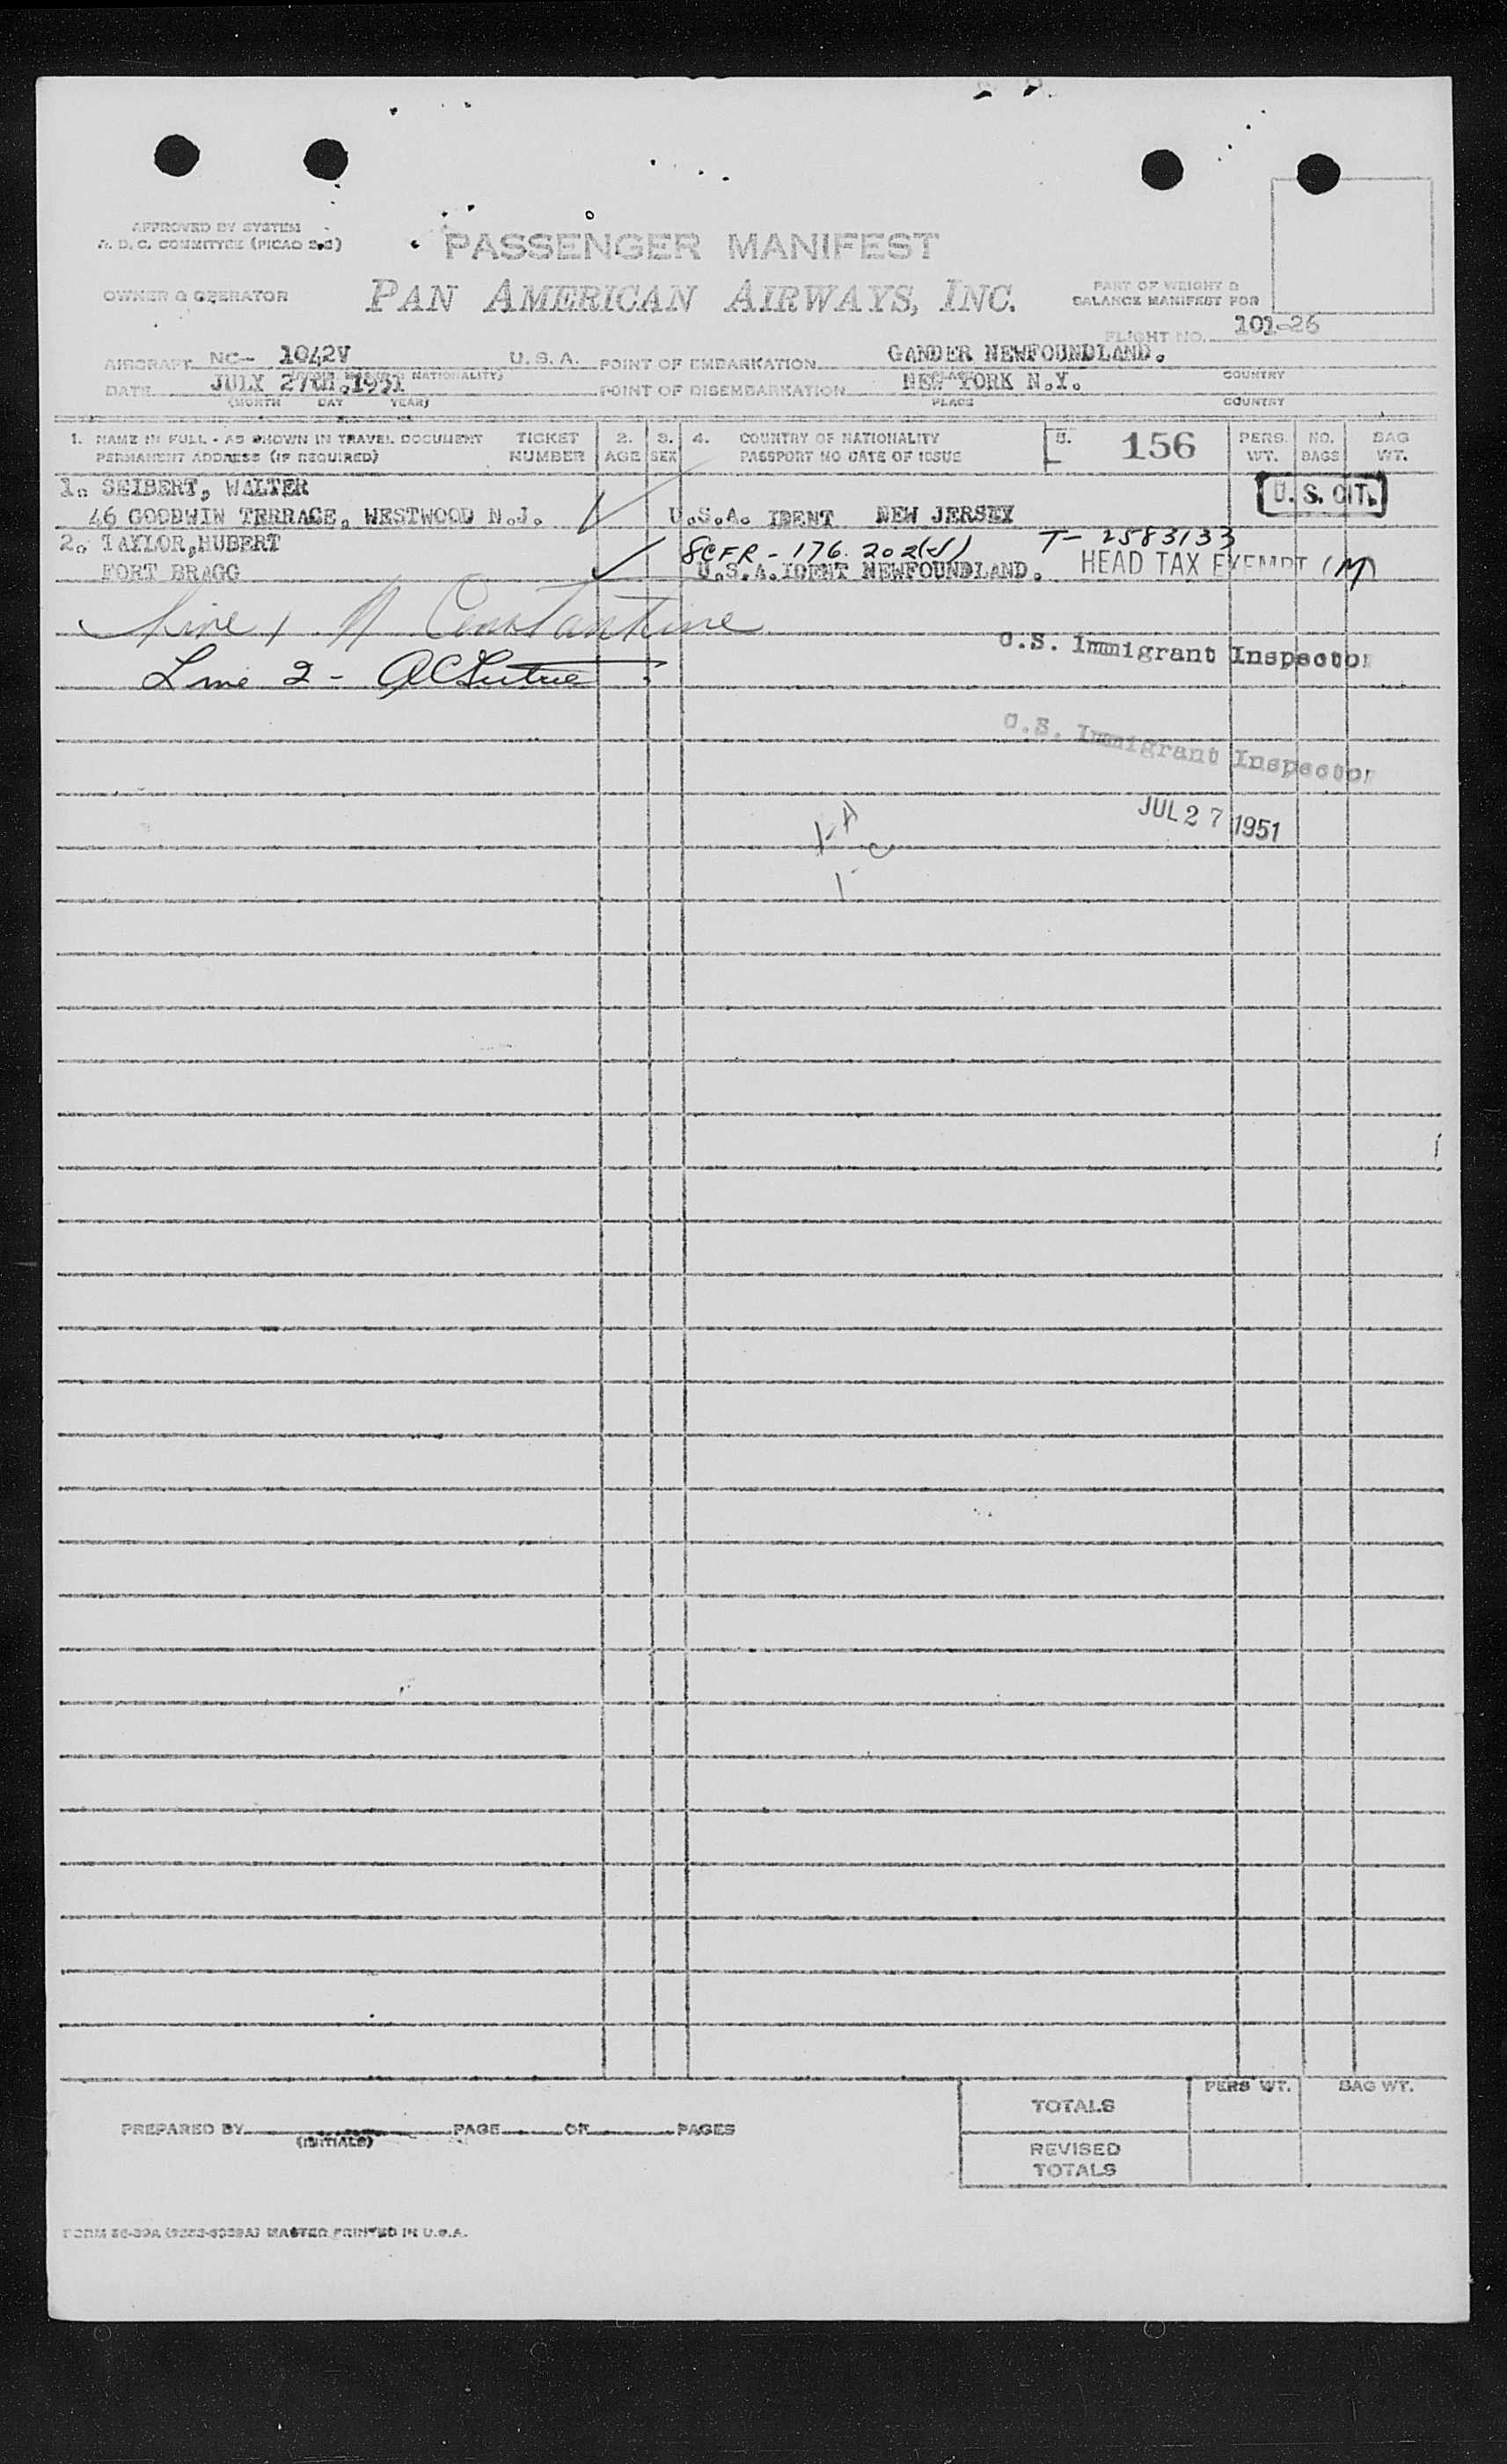 APPROVED BY SYSTEM
A. D. C. COMMITTEE (PICAO 2.2)
PASSENGER MANIFEST
OWNER & OPERATOR
PAN AMERICAN AIRWAYS, INC.
PART OF WEIGHT &
BALANCE MANIFEST FOR
FLIGHT NO. 101-26
AIRCRAFT NC- 1042V U. S. A. POINT OF EMBARKATION GANDER NEWFOUNDLAND.
NATIONALITY) PLACE COUNTRY
DATE JULY 27TH.1951 POINT OF DISEMBARKATION NEW YORK N.Y.
(MONTH DAY YEAR) PLACE COUNTRY
1. NAME IN FULL - AS SHOWN IN TRAVEL DOCUMENT TICKET 2. 3. 4. COUNTRY OF NATIONALITY 5. 156 PERS. NO. BAG
PERMANENT ADDRESS (IF REQUIRED) NUMBER AGE SEX PASSPORT NO DATE OF ISSUE WT. BAGS WT.
1. SEIBERT, WALTER U. S. CIT.
46 GOODWIN TERRACE, WESTWOOD N.J. U.S.A. IDENT NEW JERSEY
2. TAYLOR,HUBERT 8CFR - 176.202(J) T- 2583133
FORT BRAGG U.S.A.IDENT NEWFOUNDLAND. HEAD TAX EXEMPT (M)
Line 1 Constantine
U.S. Immigrant Inspector
Line 2 -
U.S. Immigrant Inspector
JUL 27 1951
1-A
1-C
TOTALS PERS WT. BAG WT.
PREPARED BY PAGE OF PAGES
(INITIALS)
REVISED
TOTALS
MASTER PRINTED IN U.S.A.